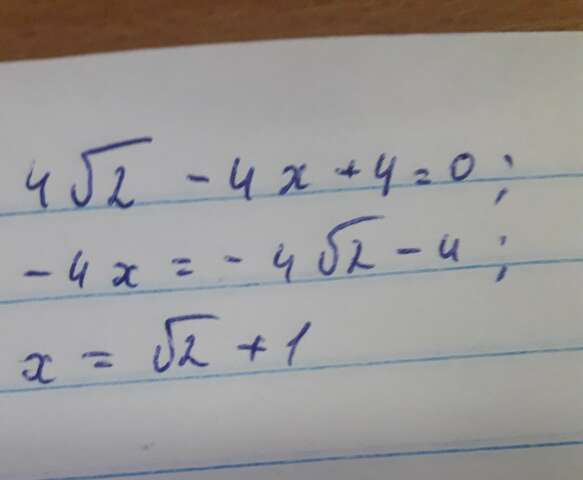 4√2 - 4x + 4 = 0;
-4x = -4√2 - 4;
x = √2 + 1